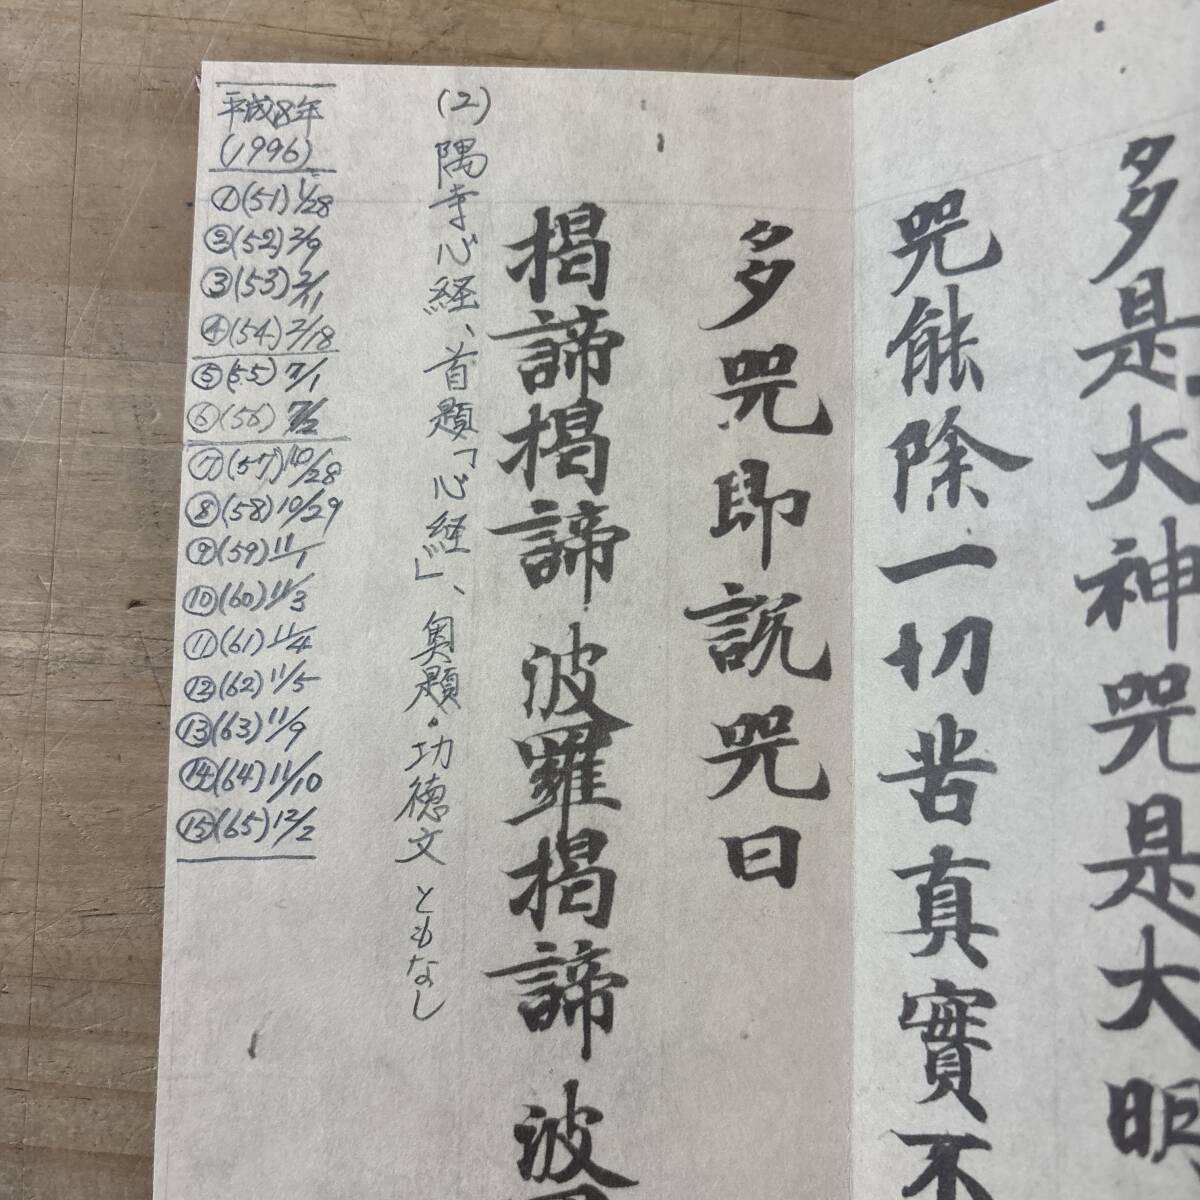 多是大神咒是大明
咒能除一切苦真實不
多咒即説咒曰
揭諦揭諦波羅揭諦波羅
(2)隅寺心経、首題「心経」、奥題・功徳文ともなし
平成8年
(1996)
①(51)1/28
②(52)2/9
③(53)2/11
④(54)2/18
⑤(55)7/1
⑥(56)
⑦(57)10/28
⑧(58)10/29
⑨(59)11/1
⑩(60)11/3
⑪(61)11/4
⑫(62)11/5
⑬(63)11/9
⑭(64)11/10
⑮(65)12/2